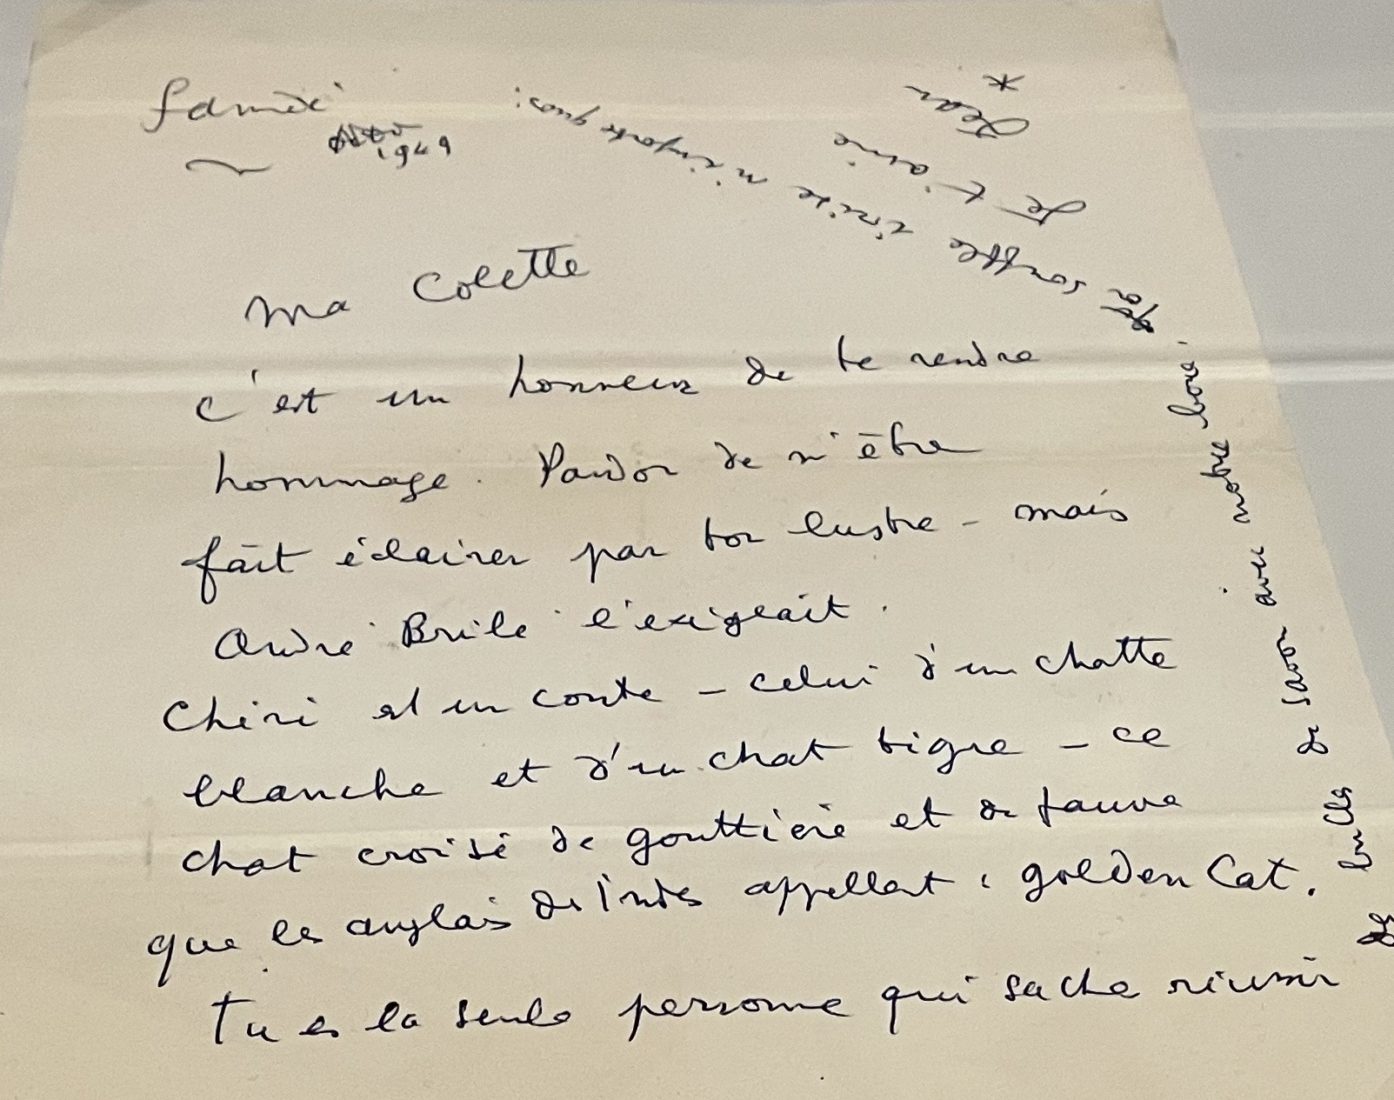 samedi
1949
Ma Colette
c'est un honneur de te rendre
hommage. Pardon de m'être
fait éclairer par ton lustre - mais
André Brulé l'exigeait.
Chéri est un conte - celui d'un chatte
blanche et d'un chat tigre - ce
chat croisé de gouttière et de fauve
que les anglais des Indes appellent : golden Cat.
Tu es la seule personne qui sache réussir
des bulles de savon avec notre boue.
Ton souffle irise n'importe quoi.
Je t'aime
Jean
*